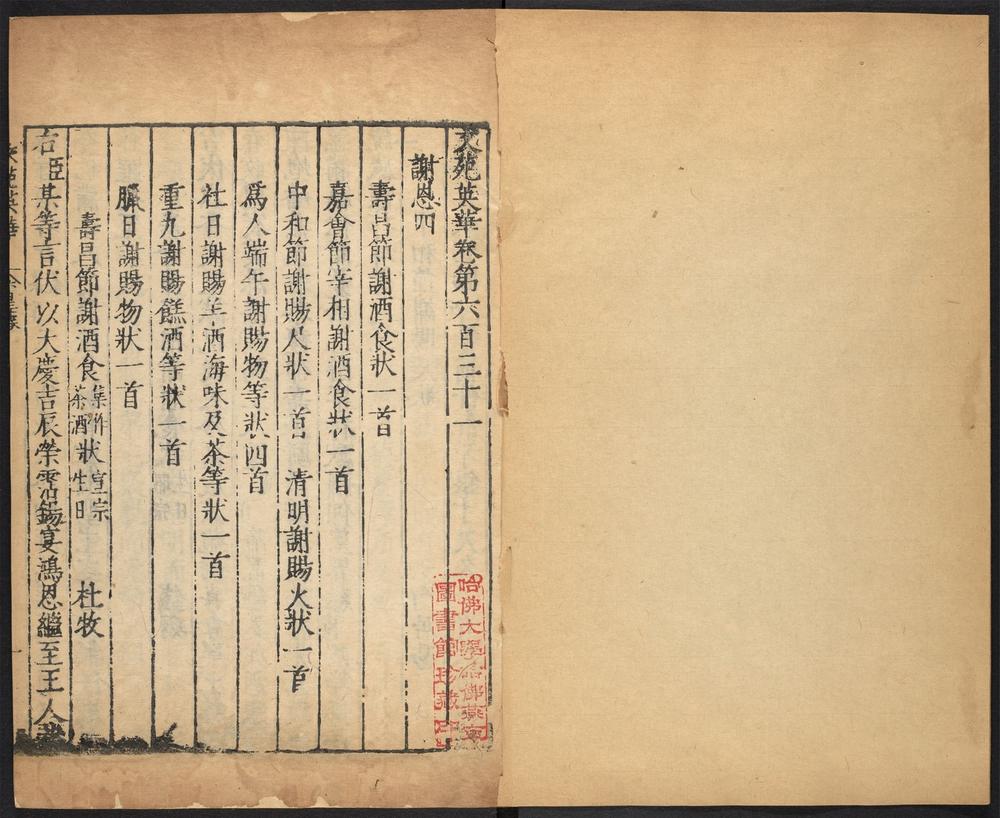 文苑英華卷第六百三十一
謝恩四
壽昌節謝酒食狀一首
嘉會節宰相謝酒食狀一首
中和節謝賜尺狀一首 清明謝賜火狀一首
爲人端午謝賜物等狀四首
社日謝賜羊酒海味及茶等狀一首
重九謝賜餻酒等狀一首
臘日謝賜物狀一首
壽昌節謝酒食 茶酒 狀 宣宗生日 杜牧
右臣某等言伏以大慶吉辰榮霑錫宴鴻恩繼至王人
哈佛大學哈佛燕京
圖書館珍藏印